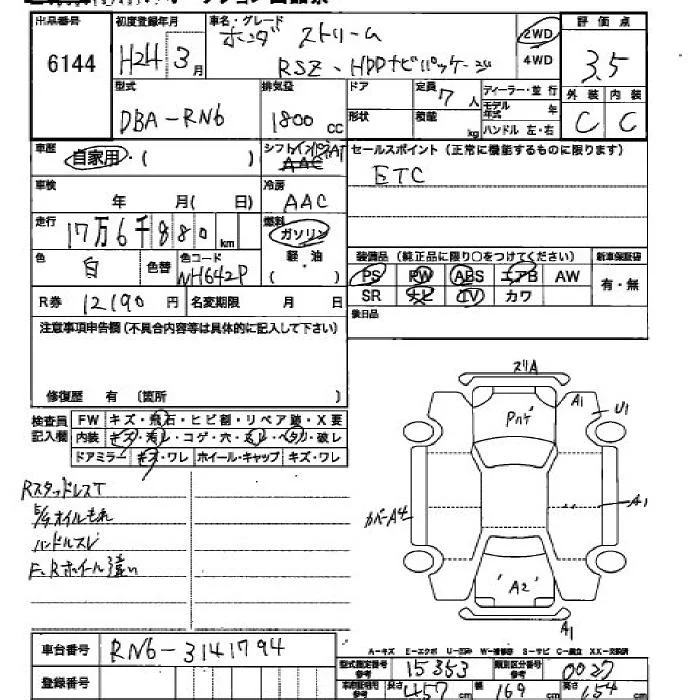 出品番号 初度登録年月 車名・グレード 評価点
6144 H24 3月 ホンダ ストリーム 2WD 3.5
RSZ・HDDナビパッケージ 4WD
型式 排気量 ドア 定員 7人 ディーラー・並行 外装 内装
DBA-RN6 1800cc 形状 積載 kg モデル年式 年 C C
ハンドル 左・右
車歴 自家用・( ) シフト AAC セールスポイント(正常に機能するものに限ります)
ETC
車検 年 月( 日) 冷房 AAC
走行 17万6千880km 燃料 ガソリン
軽・油
( )
装備品(純正品に限り○をつけてください) 新車保証書
色 白 色替 色コード NH642P PS PW ABS エアB AW 有・無
SR ナビ TV カワ
R券 12190円 名変期限 月 日 後日品
注意事項申告欄(不具合内容等は具体的に記入して下さい)
修復歴 有 〔箇所 〕
検査員記入欄 FW キズ・飛石・ヒビ割・リペア跡・X要
内装 キズ・汚レ・コゲ・穴・スレ・ヘタリ・破レ
ドアミラー キズ・ワレ ホイール・キャップ キズ・ワレ
RスタッドレスT
E/Gオイルもれ
ハンドルスレ
F、Rホイール違い
スリA
Pハゲ
A1
U1
カバーA4
A1
A2
A1
車台番号 RN6-3141794
登録番号
A-キズ E-エクボ U-凹み W-補修跡 S-サビ C-腐食 XX-交換済
型式指定番号参考 15353 類別区分番号参考 0027
長さ 457cm 幅 169cm 高さ 154cm